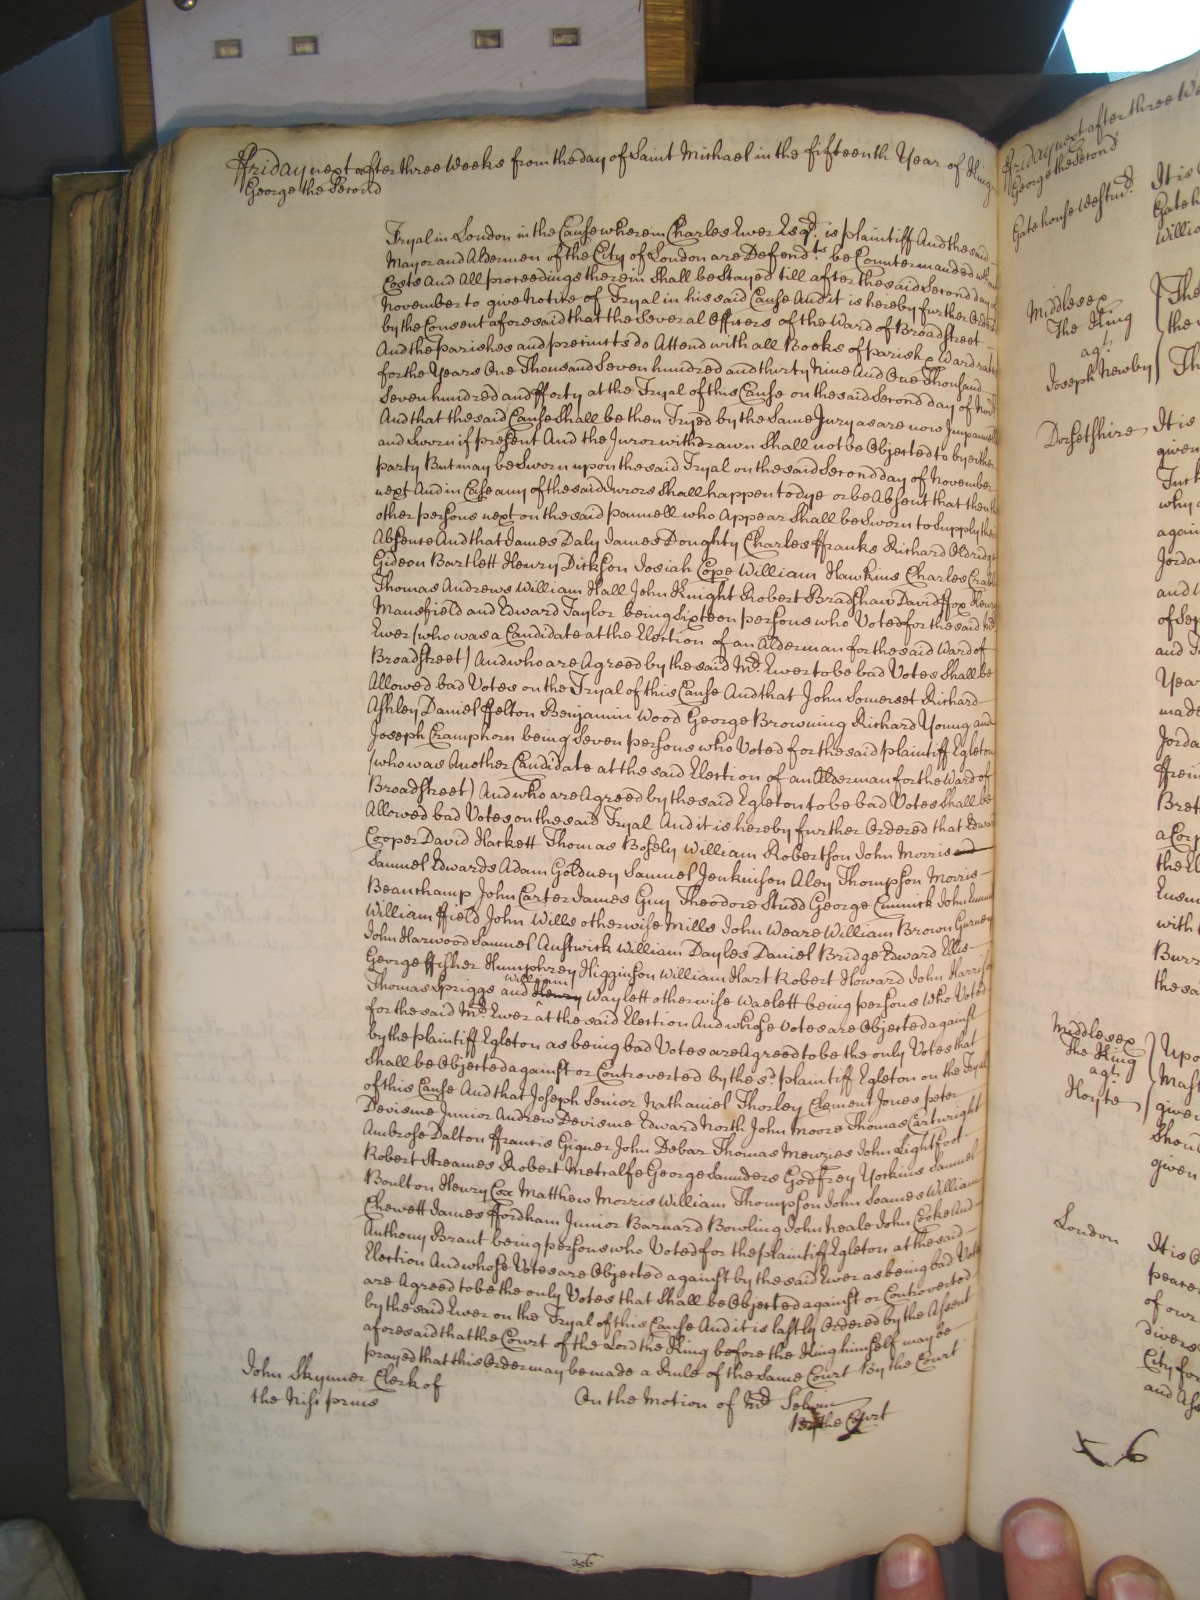 ffriday next after three Weeks from the day of Saint Michael in the fifteenth Year of King
George the Second
Tryal in London in the Cause wherein Charles Ewer Esqr. is plaintiff And the said
Mayor and Aldermen of the City of London are Defendts. be Countermanded
Costs And All proceedings therein Shall be Stayed till after the said Second day of
November to give Notice of Tryal in his said Cause And it is hereby further Ordered
by the Consent aforesaid that the Several Officers of the Ward of Broadstreet
And the parishes and precincts do Attend with all Books of parish & Ward rates
for the Years One Thousand Seven hundred and thirty Nine And One Thousand
Seven hundred and fforty at the Tryal of this Cause on the said Second day of Novr
And that the said Cause Shall be then Tryed by the Same Jury as are now Impannell
and Sworn if present And the Juror withdrawn Shall not be Objected to by either
party But may be Sworn upon the said Tryal on the said Second day of November
next And in Case any of the said Jurors Shall happen to dye or be Absent that then
other persons next on the said pannell who Appear Shall be Sworn to Supply the
Absence And that James Daly James Doughty Charles ffranks Richard Oldridge
Gideon Bartlett Henry Dickson Josiah Cope William Hawkins Charles Crabb
Thomas Andrews William Hall John Knight Robert Bradshaw David ffox Henry
Mansfield and Edward Taylor being Sixteen persons who Voted for the said Mr.
Ewer (who was a Candidate at the Election of an Alderman for the said Ward of
Broadstreet) And who are Agreed by the said Mr. Ewer to be bad Votes Shall be
Allowed bad Votes on the Tryal of this Cause And that John Somerset Richard
Ashley Daniel ffelton Benjamin Wood George Browning Richard Young and
Joseph Cramphorn being Seven persons who Voted for the said plaintiff Egleton
(who was Another Candidate at the said Election of an Alderman for the Ward of
Broadstreet) And who are Agreed by the said Egleton to be bad Votes Shall be
Allowed bad Votes on the said Tryal And it is hereby further Ordered that Edward
Cooper David Hackett Thomas Bosely William Robertson John Morris and
Samuel Edwards Adam Goldney Samuel Jenkinson Aley Thompson Morris
Beauchamp John Carter James Guy Theodore Studd George Cminick John
William ffield John Wills otherwise Mills John Weare William Brown Gurney
John Harwood Samuel Austwick William Dayles Daniel Bridge Edward Ellis
George ffisher Humphrey Higginson William Hart Robert Howard John Harrison
Thomas Spriggs and Henry William Waylett otherwise Waelett being persons who Voted
for the said Mr. Ewer at the said Election And whose Votes are Objected against
by the plaintiff Egleton as being bad Votes are Agreed to be the only Votes that
Shall be Objected against or Controverted by the sd. plaintiff Egleton on the Tryal
of this Cause And that Joseph Senior Nathaniel Thorley Clement Jones peter
Devisme Junior Andrew Devisme Edward North John Moore Thomas Cartwright
Ambrose Dalton ffrancis Gigner John Debar Thomas Merries John Lightfoot
Robert Streames Robert Metcalfe George Saunders Godfrey Yorkins Samuel
Boulton Henry Cox Matthew Morris William Thompson John Soames William
Chewett James ffordham Junior Barnard Bowling John Neale John Cooke And
Anthony Brant being persons who Voted for the plaintiff Egleton at the said
Election And whose Votes are Objected against by the said Ewer as being bad Votes
are Agreed to be the only Votes that Shall be Objected against or Controverted
by the said Ewer on the Tryal of this Cause And it is lastly Ordered by the Assent
aforesaid that the Court of the Lord the King before the King himself may be
prayed that this Order may be made a Rule of the Same Court By the Court
John Skynner Clerk of
the Nisi prius
On the Motion of Mr. Selwin
By the Court
356
ffriday next after three We
George the Second
Gatehouse Westmr.
It is
Gateh
Willia
Middlesex
The King
agt.
Joseph Newby
The
the
Th
Dorsetshire
It is
given
Tuck
why
again
Jorda
and
of Sep
and
Year
made
Jorda
ffrein
Bret
a Corp
the El
Enem
with
Burr
the sa
Middlesex
The King
agt.
Hoyte
Upo
Mast
give
Shou
given
London
It is O
peare
of our
divers
City for
and Ass
56